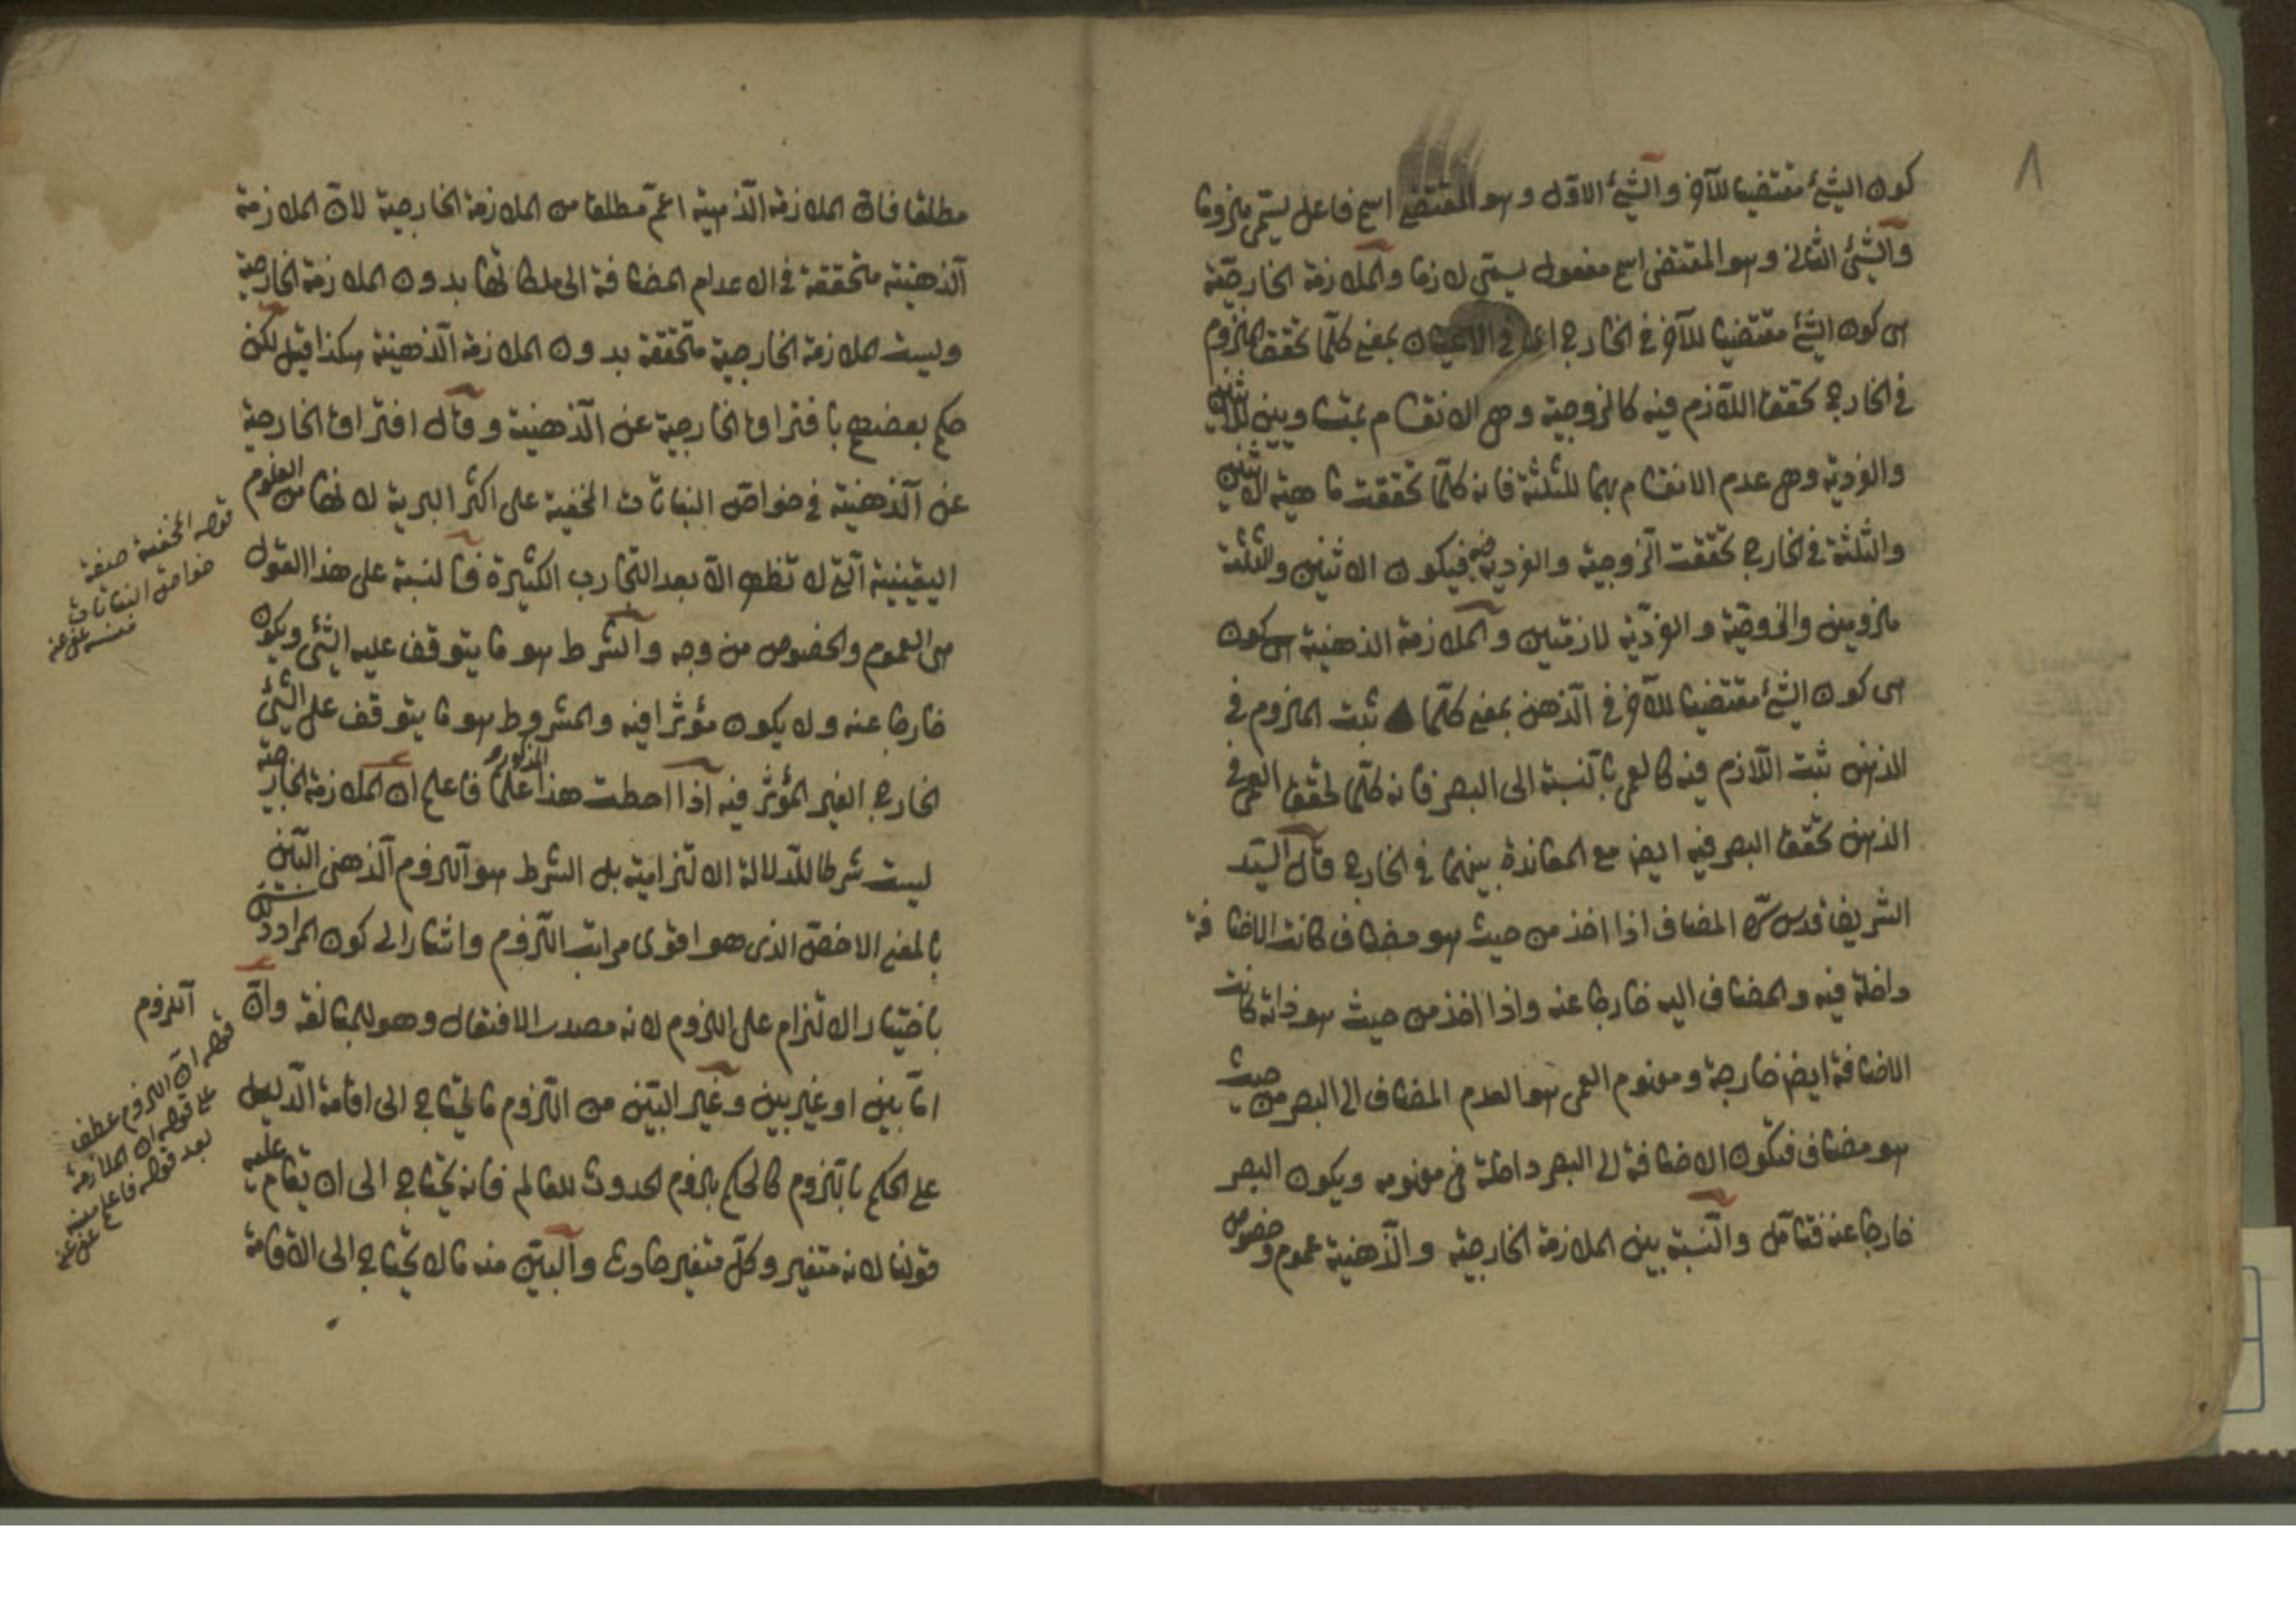 ٨
كون الشيئ مقتضيا للآخر والشيئ الاول وهو المقتضي اسم فاعل يسمى ملزوما
والشيئ الثانى وهو المقتضى اسم مفعول يسمى لازما والملازمة الخارجية
هى كون الشيئ مقتضيا للآخر فى الخارج اى فى الاعيان بمعنى كلما تحقق الملزوم
فى الخارج تحقق اللازم فيه كالزوجية وهى الانقسام بمتساويين للاثنين
والفردية وهى عدم الانقسام بهما للثلثة فانه كلما تحققت ماهية الاثنين
والثلثة فى الخارج تحققت الزوجية والفردية فيه فيكون الاثنين والثلثة
ملزومين والزوجية والفردية لازمتين والملازمة الذهنية
هى كون الشيئ مقتضيا للآخر فى الذهن بمعنى كلما ثبت الملزوم فى
الذهن ثبت اللازم فيه كالعمى بالنسبة الى البصر فانه كلما تحقق العمى فى
الذهن تحقق البصر فيه ايضا مع المعاندة بينهما فى الخارج قال السيد
الشريف قدس سره المضاف اذا اخذ من حيث هو مضاف كانت الاضافة
داخلة فيه والمضاف اليه خارجا عنه واذا اخذ من حيث هو ذاته كانت
الاضافة ايضا خارجة ومفهوم العمى هو العدم المضاف الى البصر من حيث
هو مضاف فتكون الاضافة الى البصر داخلة فى مفهومه ويكون البصر
خارجا عنه فتأمل والنسبة بين الملازمة الخارجية والذهنية عموم وخصوص
مطلقا فان الملازمة الذهنية اعم مطلقا من الملازمة الخارجية لان الملازمة
الذهنية متحققة فى الاعدام المضافة الى ملكاتها بدون الملازمة الخارجية
وليست الملازمة الخارجية متحققة بدون الملازمة الذهنية هكذا قيل لكن
حكم بعضهم بافتراق الخارجية عن الذهنية وقال افتراق الخارجية
عن الذهنية فى خواص النباتات الخفية على اكثر البرية لانها من العلوم
اليقينية التى لا تظهر الا بعد التجارب الكثيرة فالنسبة على هذا القول
هى العموم والخصوص من وجه والشرط هو ما يتوقف عليه الشيئ ويكون
خارجا عنه ولا يكون مؤثرا فيه والمشروط هو ما يتوقف على الشيئ
الخارج الغير المؤثر فيه اذا احطت هذا المذكور علما فاعلم ان الملازمة الخارجية
ليست شرطا للدلالة الالتزامية بل الشرط هو اللزوم الذهنى البين
بالمعنى الاخص الذى هو اقوى مراتب اللزوم واشار الى كون المراد
باختيار الالتزام على اللزوم لانه مصدر الافتعال وهو للمبالغة وان اللزوم
اما بين او غير بين وغير البين من اللزوم ما يحتاج الى اقامة الدليل
على الحكم باللزوم كالحكم بلزوم الحدوث للعالم فانه يحتاج الى ان يقام عليه
قولنا لانه متغير وكل متغير حادث والبين منه ما لا يحتاج الى الاقامة
قوله الخفية صفة
خواص النباتات
منه عفى عنه
قوله ان اللزوم عطف
على قوله ان الملازمة
بعد قوله فاعلم منه
عفى عنه